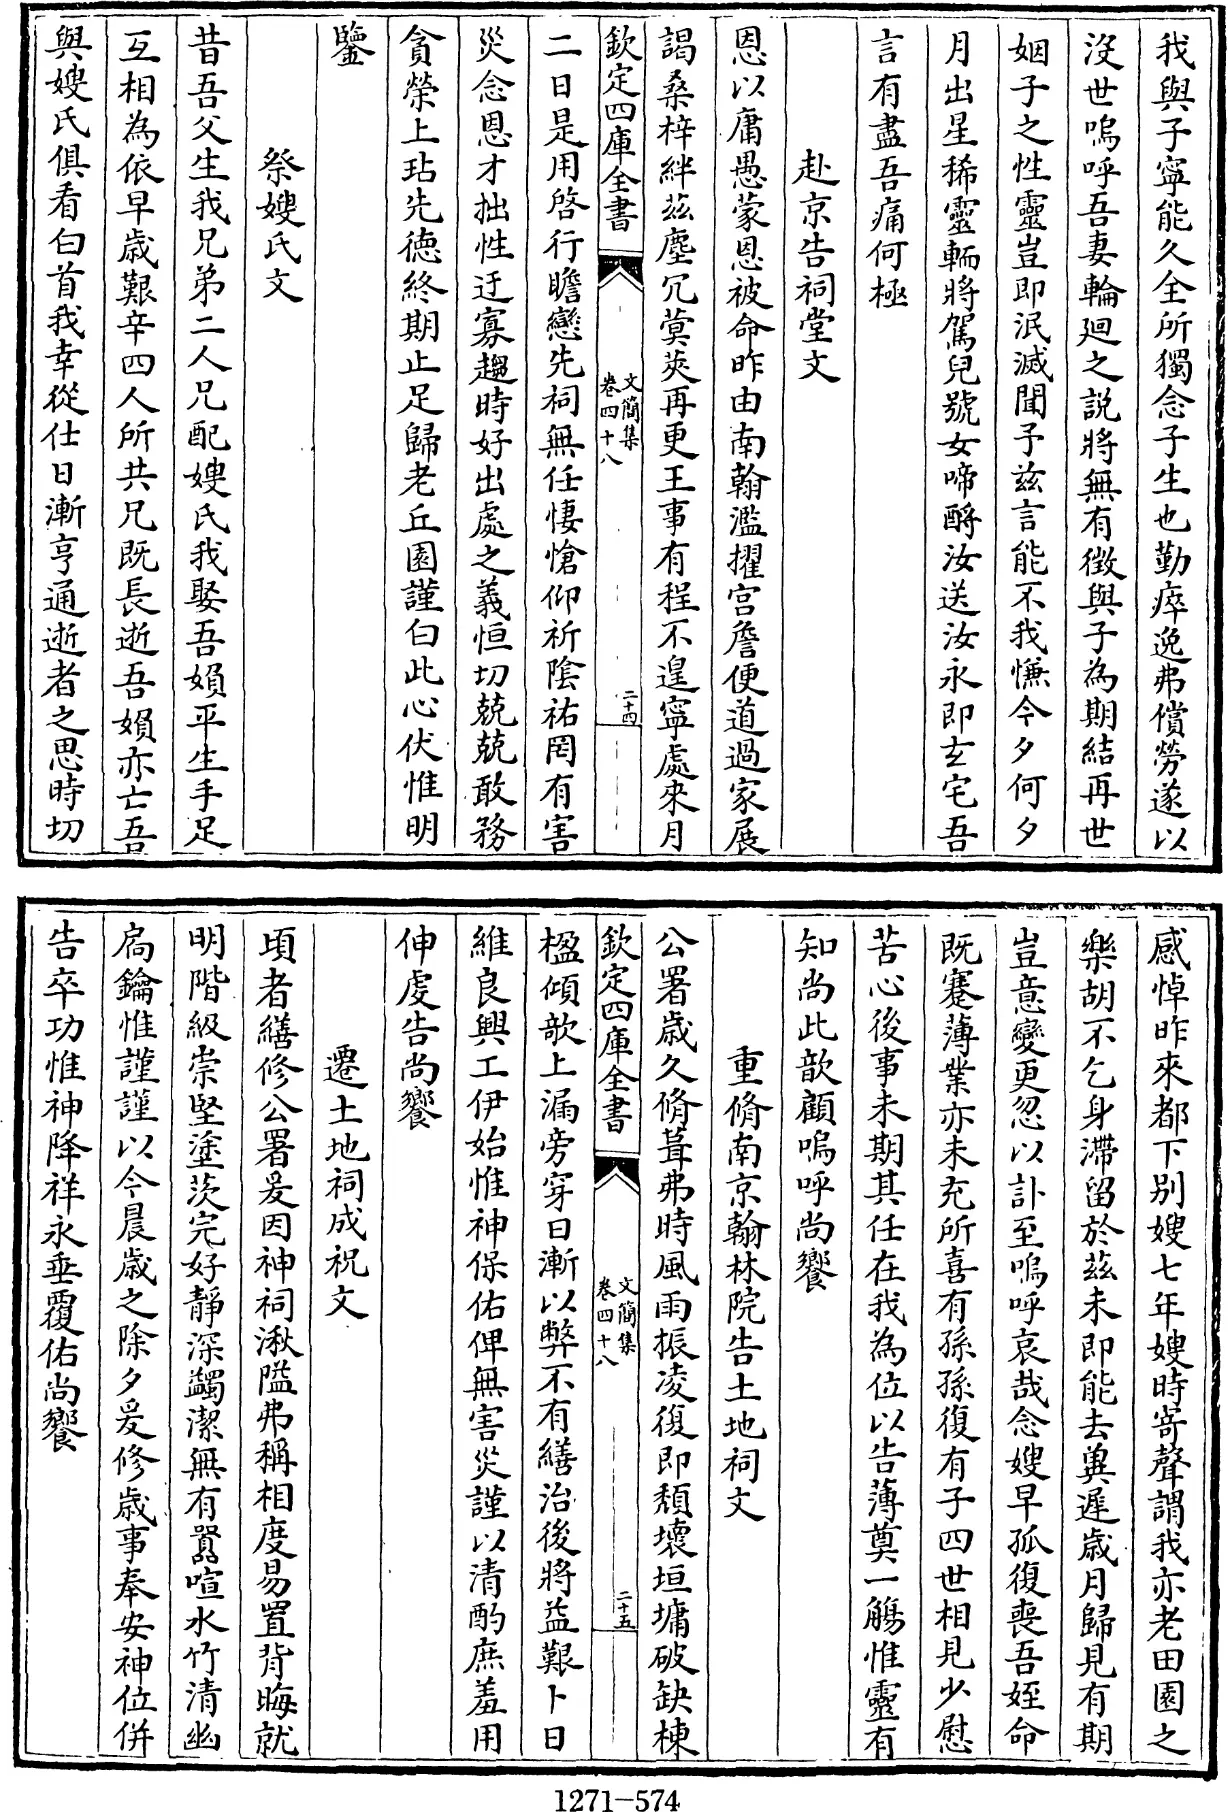 我與子寧能久全所獨念子生也勤瘁逸弗償勞遂以
沒世嗚呼吾妻輪廻之説將無有徵與子為期結再世
姻子之性靈豈即泯滅聞予兹言能不我慊今夕何夕
月出星稀靈輀將駕兒號女啼酹汝送汝永即玄宅吾
言有盡吾痛何極
赴京告祠堂文
恩以庸愚蒙恩被命昨由南翰濫擢宫詹便道過家展
謁桑梓絆兹塵冗蓂莢再更王事有程不遑寧處來月
欽定四庫全書
文簡集
卷四十八
二十四
二日是用啓行瞻戀先祠無任悽愴仰祈陰祐罔有害
災念恩才拙性迂寡趨時好出處之義恒切兢兢敢務
貪榮上玷先德終期止足歸老丘園謹白此心伏惟明
鑒
祭嫂氏文
昔吾父生我兄弟二人兄配嫂氏我娶吾媍平生手足
互相為依早歲艱辛四人所共兄既長逝吾媍亦亡吾
與嫂氏俱看白首我幸從仕日漸亨通逝者之思時切
感悼昨來都下别嫂七年嫂時寄聲謂我亦老田園之
樂胡不乞身滯留於兹未即能去兾遲歲月歸見有期
豈意變更忽以訃至嗚呼哀哉念嫂早孤復喪吾姪命
既蹇薄業亦未充所喜有孫孫復有子四世相見少慰
苦心後事未期其任在我為位以告薄奠一觴惟靈有
知尚此歆顧嗚呼尚饗
重脩南京翰林院告土地祠文
公署歲久脩葺弗時風雨振凌復即頽壞垣墉破缺棟
欽定四庫全書
文簡集
卷四十八
二十五
楹傾欹上漏旁穿日漸以弊不有繕治後將益艱卜日
維良興工伊始惟神保佑俾無害災謹以清酌庶羞用
伸虔告尚饗
遷土地祠成祝文
頃者繕修公署爰因神祠湫隘弗稱相度易置背晦就
明階級崇堅塗茨完好靜深蠲潔無有囂喧水竹清幽
扃鑰惟謹謹以今晨歲之除夕爰修歲事奉安神位併
告卒功惟神降祥永垂覆佑尚饗
1271—574